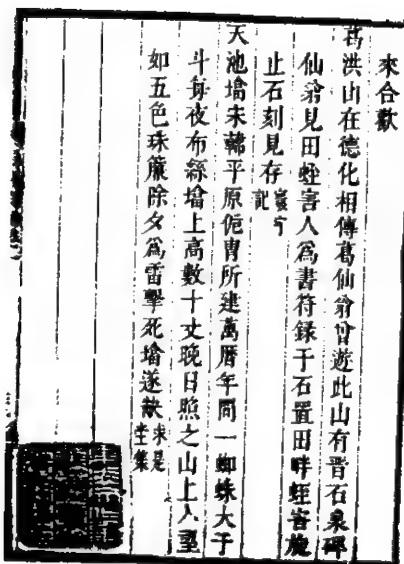 來合歡
葛洪山在德化相傳葛仙翁曾遊此山有晋石泉碑
仙翁見田蛭害人爲書符録于石置田畔蛭害旋
止石刻見存寰宇記
天池墖宋韓平原侂胄所建萬曆年間一蜘蛛大于
斗每夜布絲墖上高數十丈晚日照之山上人望
如五色珠簾除夕爲雷擊死墖遂求是堂集